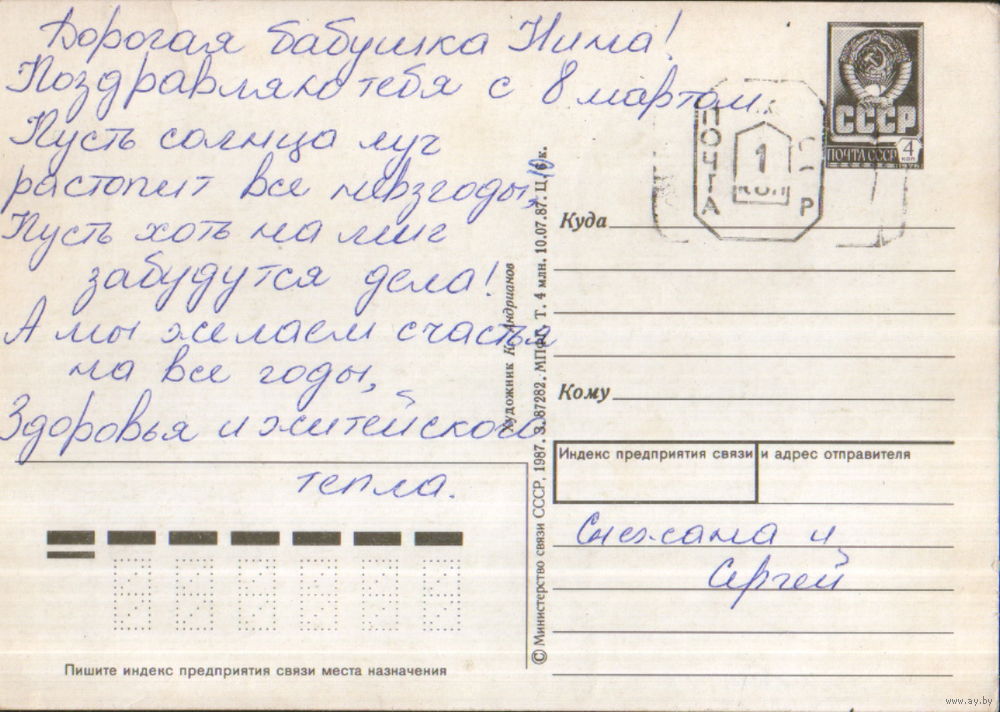 Дорогая бабушка Нина!
Поздравляю тебя с 8 мартом.
Пусть солнца луч
растопит все невзгоды,
Пусть хоть на миг
забудутся дела!
А мы желаем счастья
на все годы,
Здоровья и житейского
тепла.
Пишите индекс предприятия связи места назначения
Художник К. Андрианов
© Министерство связи СССР, 1987. З. 87282. МПФГ. Т. 4 млн. 10.07.87. Ц. 6 к.
СССР
ПОЧТА СССР 4 коп
ПОЧТА
1
КОП
Р
Куда
Кому
Индекс предприятия связи и адрес отправителя
Снежана и
Сергей
www.ay.by